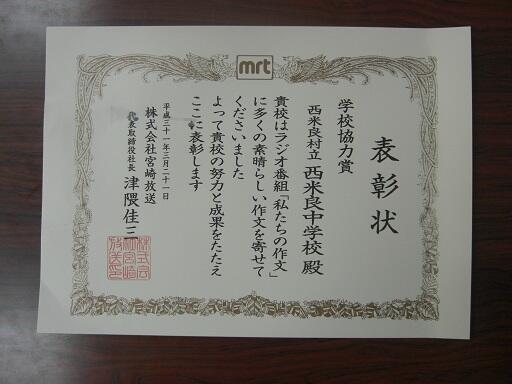 mrt
表彰状
学校協力賞
西米良村立 西米良中学校 殿
貴校はラジオ番組「私たちの作文」
に多くの素晴らしい作文を寄せて
くださいました
よって貴校の努力と成果をたたえ
ここに表彰します
平成三十一年三月二十一日
株式会社宮崎放送
代表取締役社長 津隈佳三
株式会
社宮崎
放送印